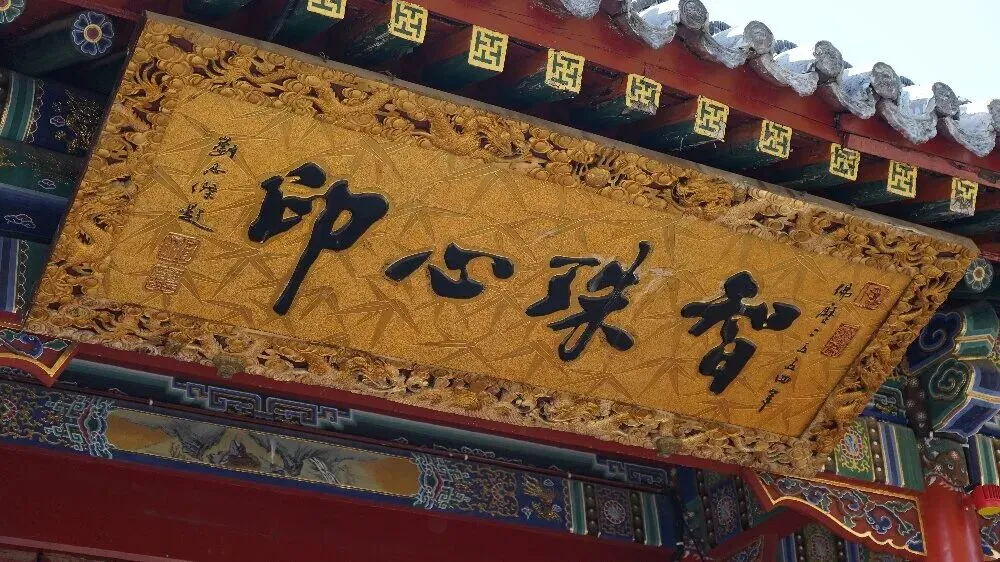 佛曆二五五四年
智珠心印
劉傑題